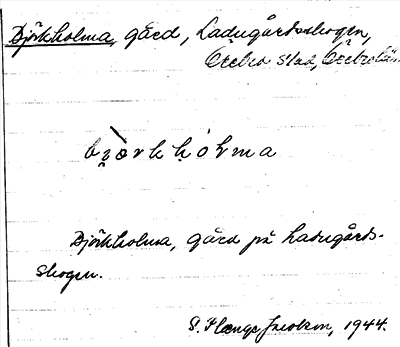 Björkholma, gård, Ladugårdsskogen,
Örebro stad, Örebro län
bjòrkhólma
Björkholma, gård på Ladugårds-
skogen.
S. 1944.